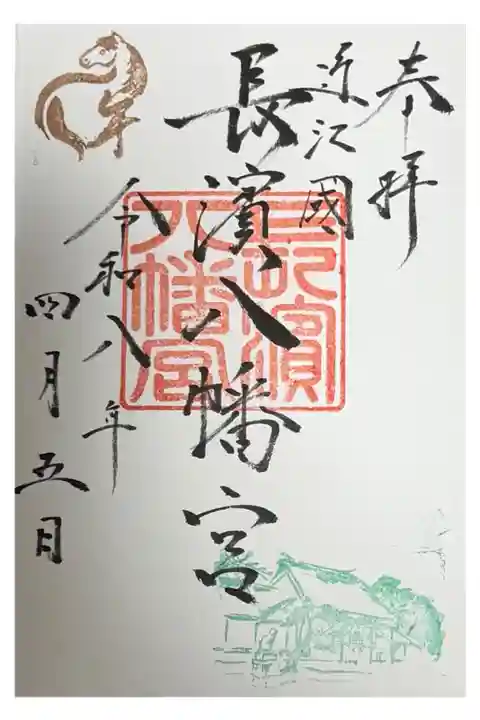 奉拝
近江國
長濱八幡宮
長濱
八幡宮
令和八年
四月五日
午